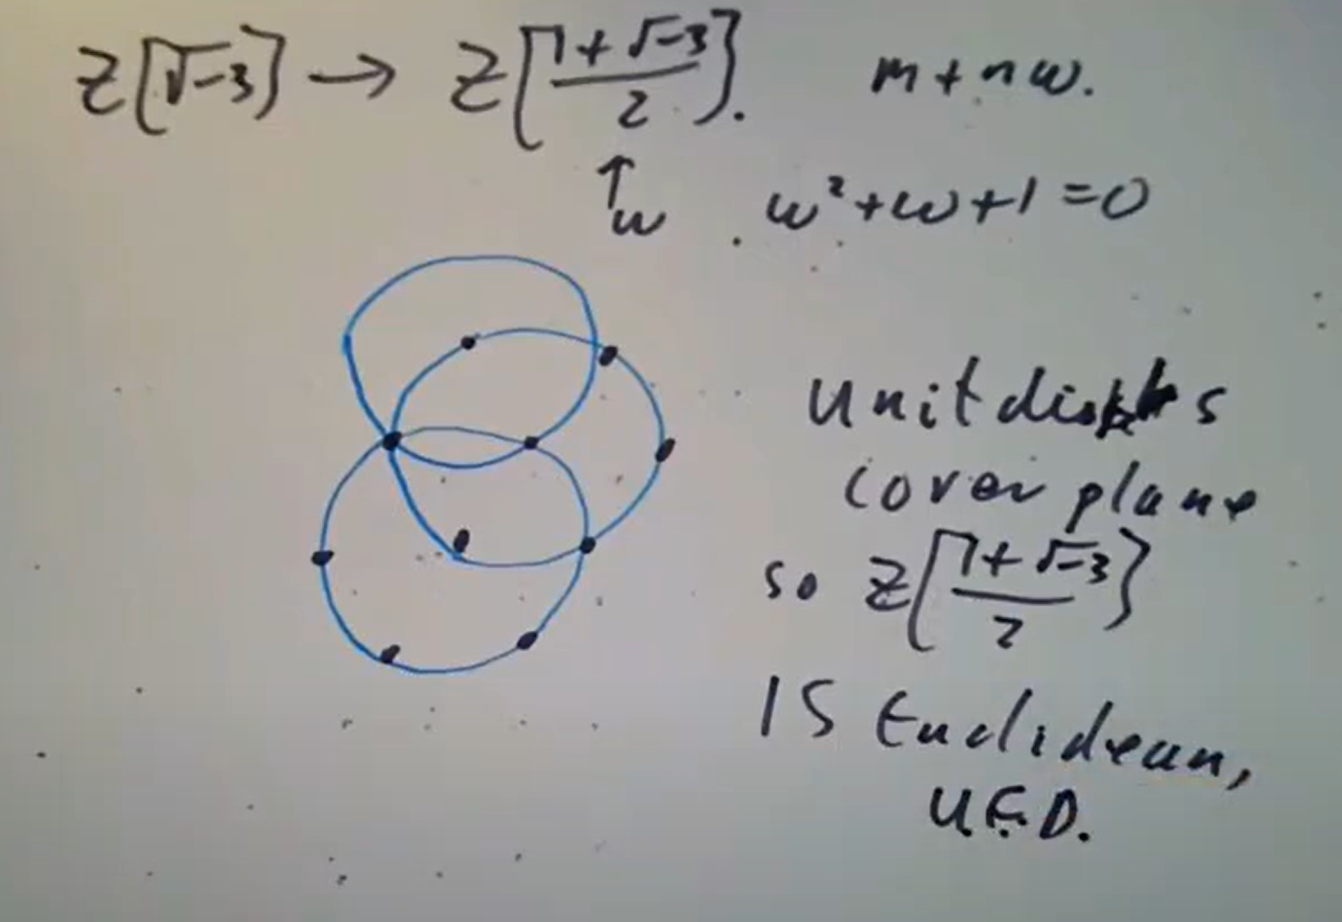 Z[√-3] → Z[(1+√-3)/2]. m+nω.
↑ω . ω²+ω+1=0
unit disks
cover plane
so Z[(1+√-3)/2]
IS Euclidean,
U.F.D.